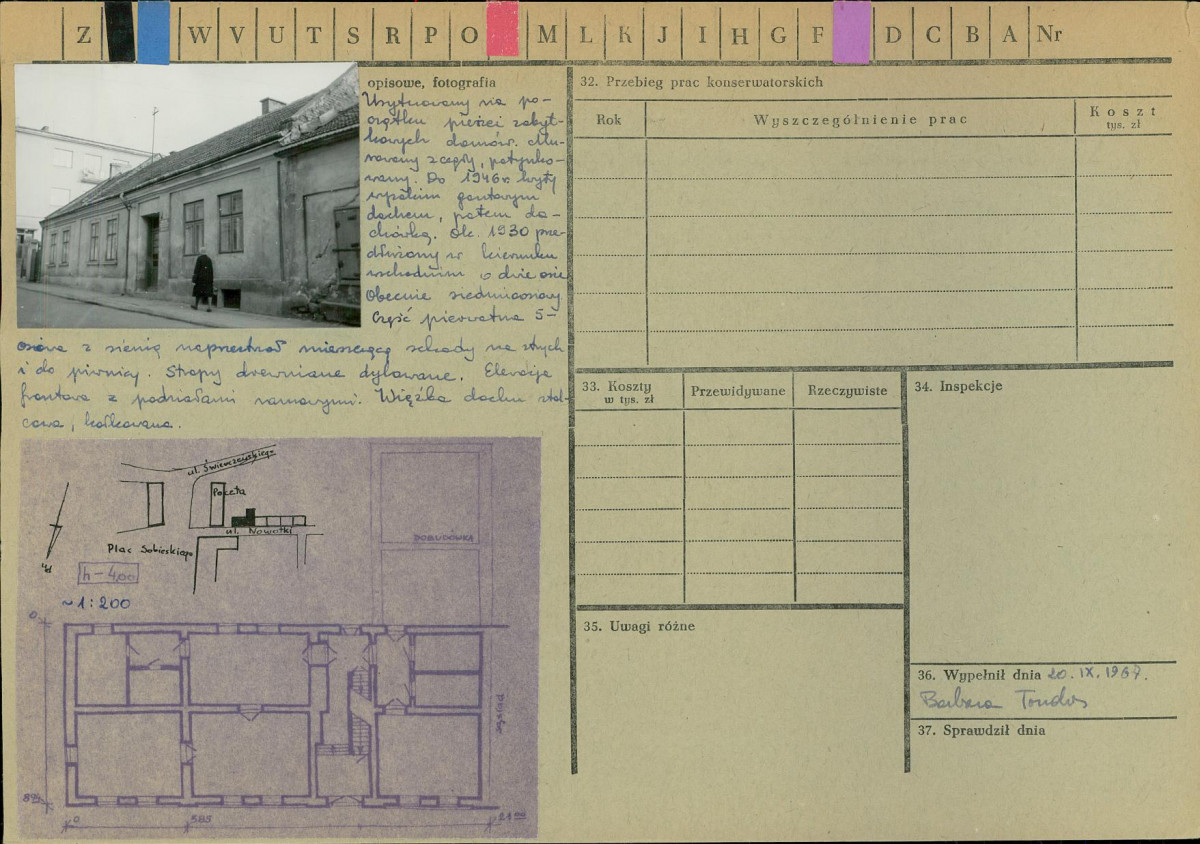 Z W V U T S R P O M L K J I H G F D C B A Nr
opisowe, fotografia
Usytuowany na po-
czątku pierzei zabyt-
kowych domów. Mu-
rowany z cegły, potynko-
wany. Do 1946 r. kryty
wysokim gontowym
dachem, potem da-
chówką. Ok. 1930 prze-
dłużony w kierunku
wschodnim o dwie osie
Obecnie siedmioosiowy
Część pierwotna 5-
osiowa z sienią naprzestrzał mieszczącą schody na strych
i do piwnicy. Stropy drewniane dylowane. Elewacje
frontowa z podziałami ramowymi. Więźba dachu stol-
cowa, kołkowana.
ul. Świerczewskiego
Poczta
ul. Nowotki
Plac Sobieskiego
h - 4,00
~ 1:200
DOBUDÓWKA
0
0
585
32. Przebieg prac konserwatorskich
Rok
Wyszczególnienie prac
Koszt
tys. zł
33. Koszty
w tys. zł
Przewidywane
Rzeczywiste
34. Inspekcje
35. Uwagi różne
36. Wypełnił dnia 20.IX.1967.
Barbara Tondos
37. Sprawdził dnia